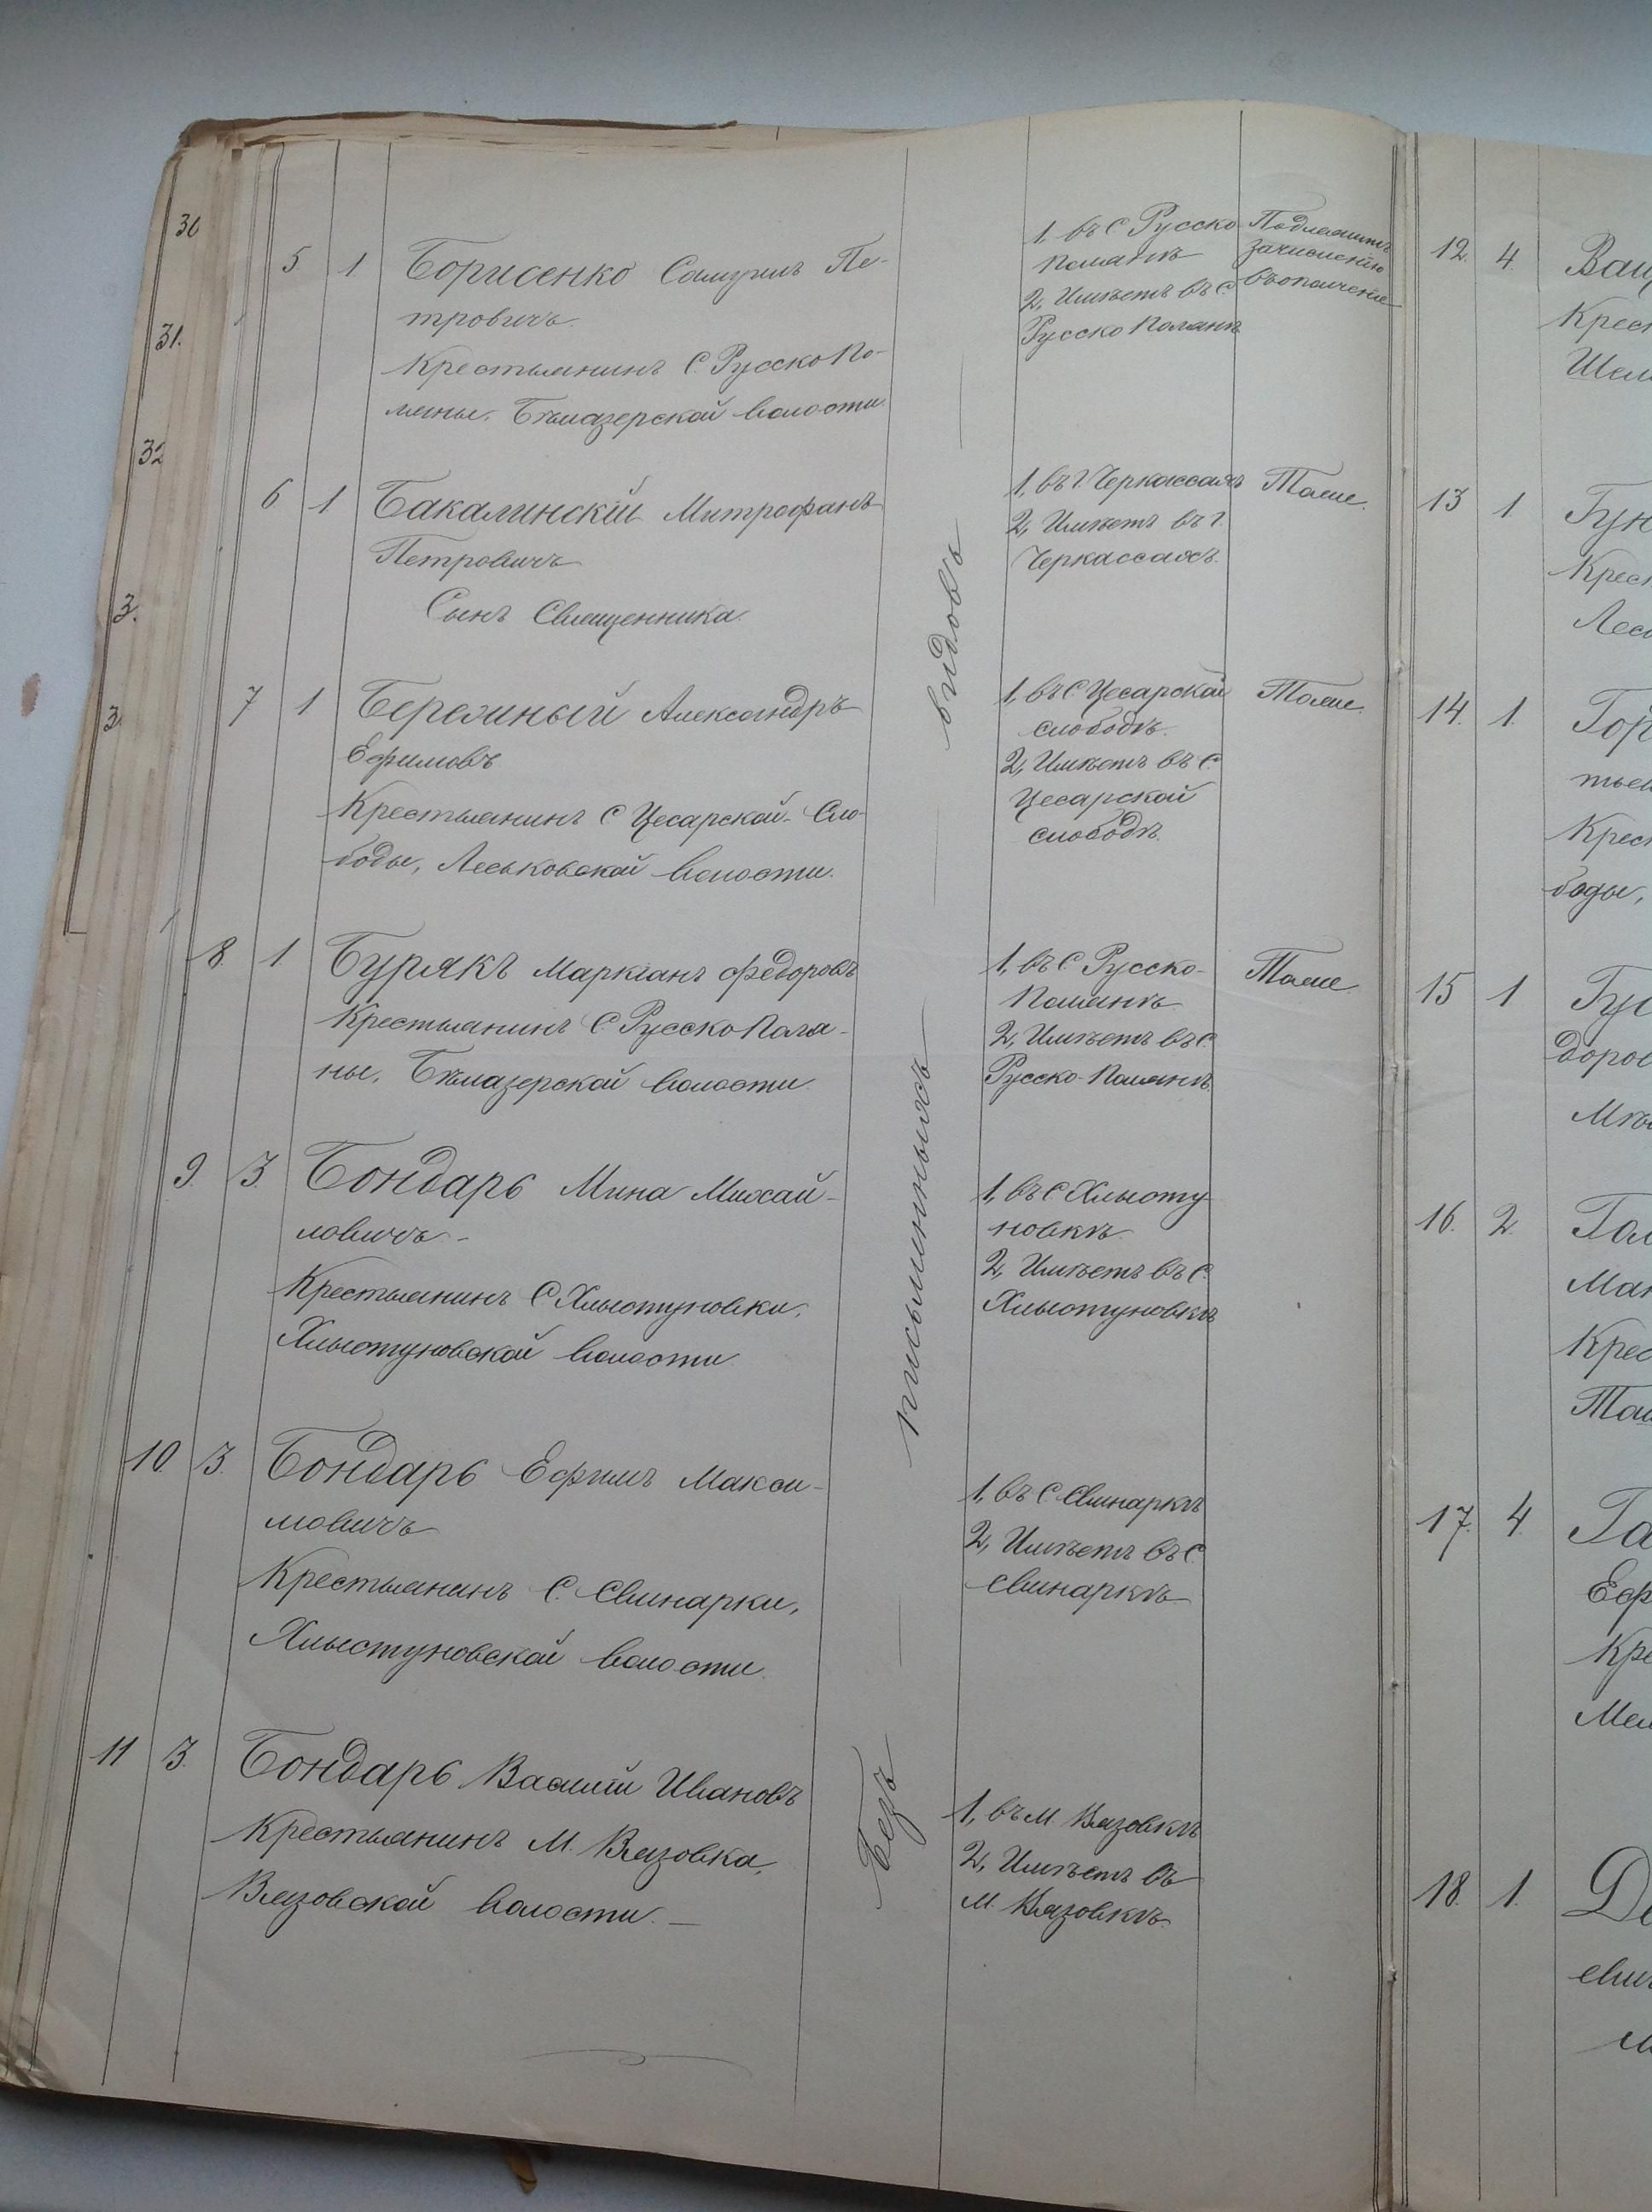 30
31.
32
3.
3.
5 1 Борисенко Самуилъ Пе-
тровичъ.
Крестьянинъ С. Русско По-
ляны, Бѣлазерской волости
1, въ С. Русско
Полянѣ
2, Имѣетъ въ С.
Русско Полянѣ
Подлежитъ
зачисленію
въ ополченіе
6 1 Бакалинскій Митрофанъ
Петровичъ
Сынъ Священника.
1, въ г. Черкассахъ
2, Имѣетъ въ г.
Черкассахъ.
Тоже.
7 1 Бережный Александръ
Ефимовъ
Крестьянинъ С. Цесарской Сло-
боды, Леськовской волости.
1, въ С. Цесарской
слободѣ.
2, Имѣетъ въ С.
Цесарской
слободѣ.
Тоже.
8. 1 Бурякъ Маркіанъ Федоровъ
Крестьянинъ С. Русско Поля-
ны, Бѣлазерской волости.
1, въ С. Русско-
Полянѣ
2, Имѣетъ въ С.
Русско-Полянѣ.
Тоже.
9. 3. Бондарь Мина Михай-
ловичъ-
Крестьянинъ С. Хлыстуновки,
Хлыстуновской волости
1, въ С. Хлысту
новкѣ.
2, Имѣетъ въ С.
Хлыстуновкѣ
10. 3. Бондарь Ефимъ Макси-
мовичъ
Крестьянинъ С. Свинарки,
Хлыстуновской волости.
1, въ С. Свинаркѣ
2, Имѣетъ въ С.
Свинаркѣ
11 3. Бондарь Василій Ивановъ
Крестьянинъ М. Вязовка,
Вязовской волости. —
1, въ М. Вязовкѣ
2, Имѣетъ въ
М. Вязовкѣ.
Безъ — письменныхъ — видовъ —
12. 4.
Крест
13 1
Крест
14. 1.
Крест
боды,
15 1
16. 2.
Крес
17. 4
Еф
Кре
18. 1.